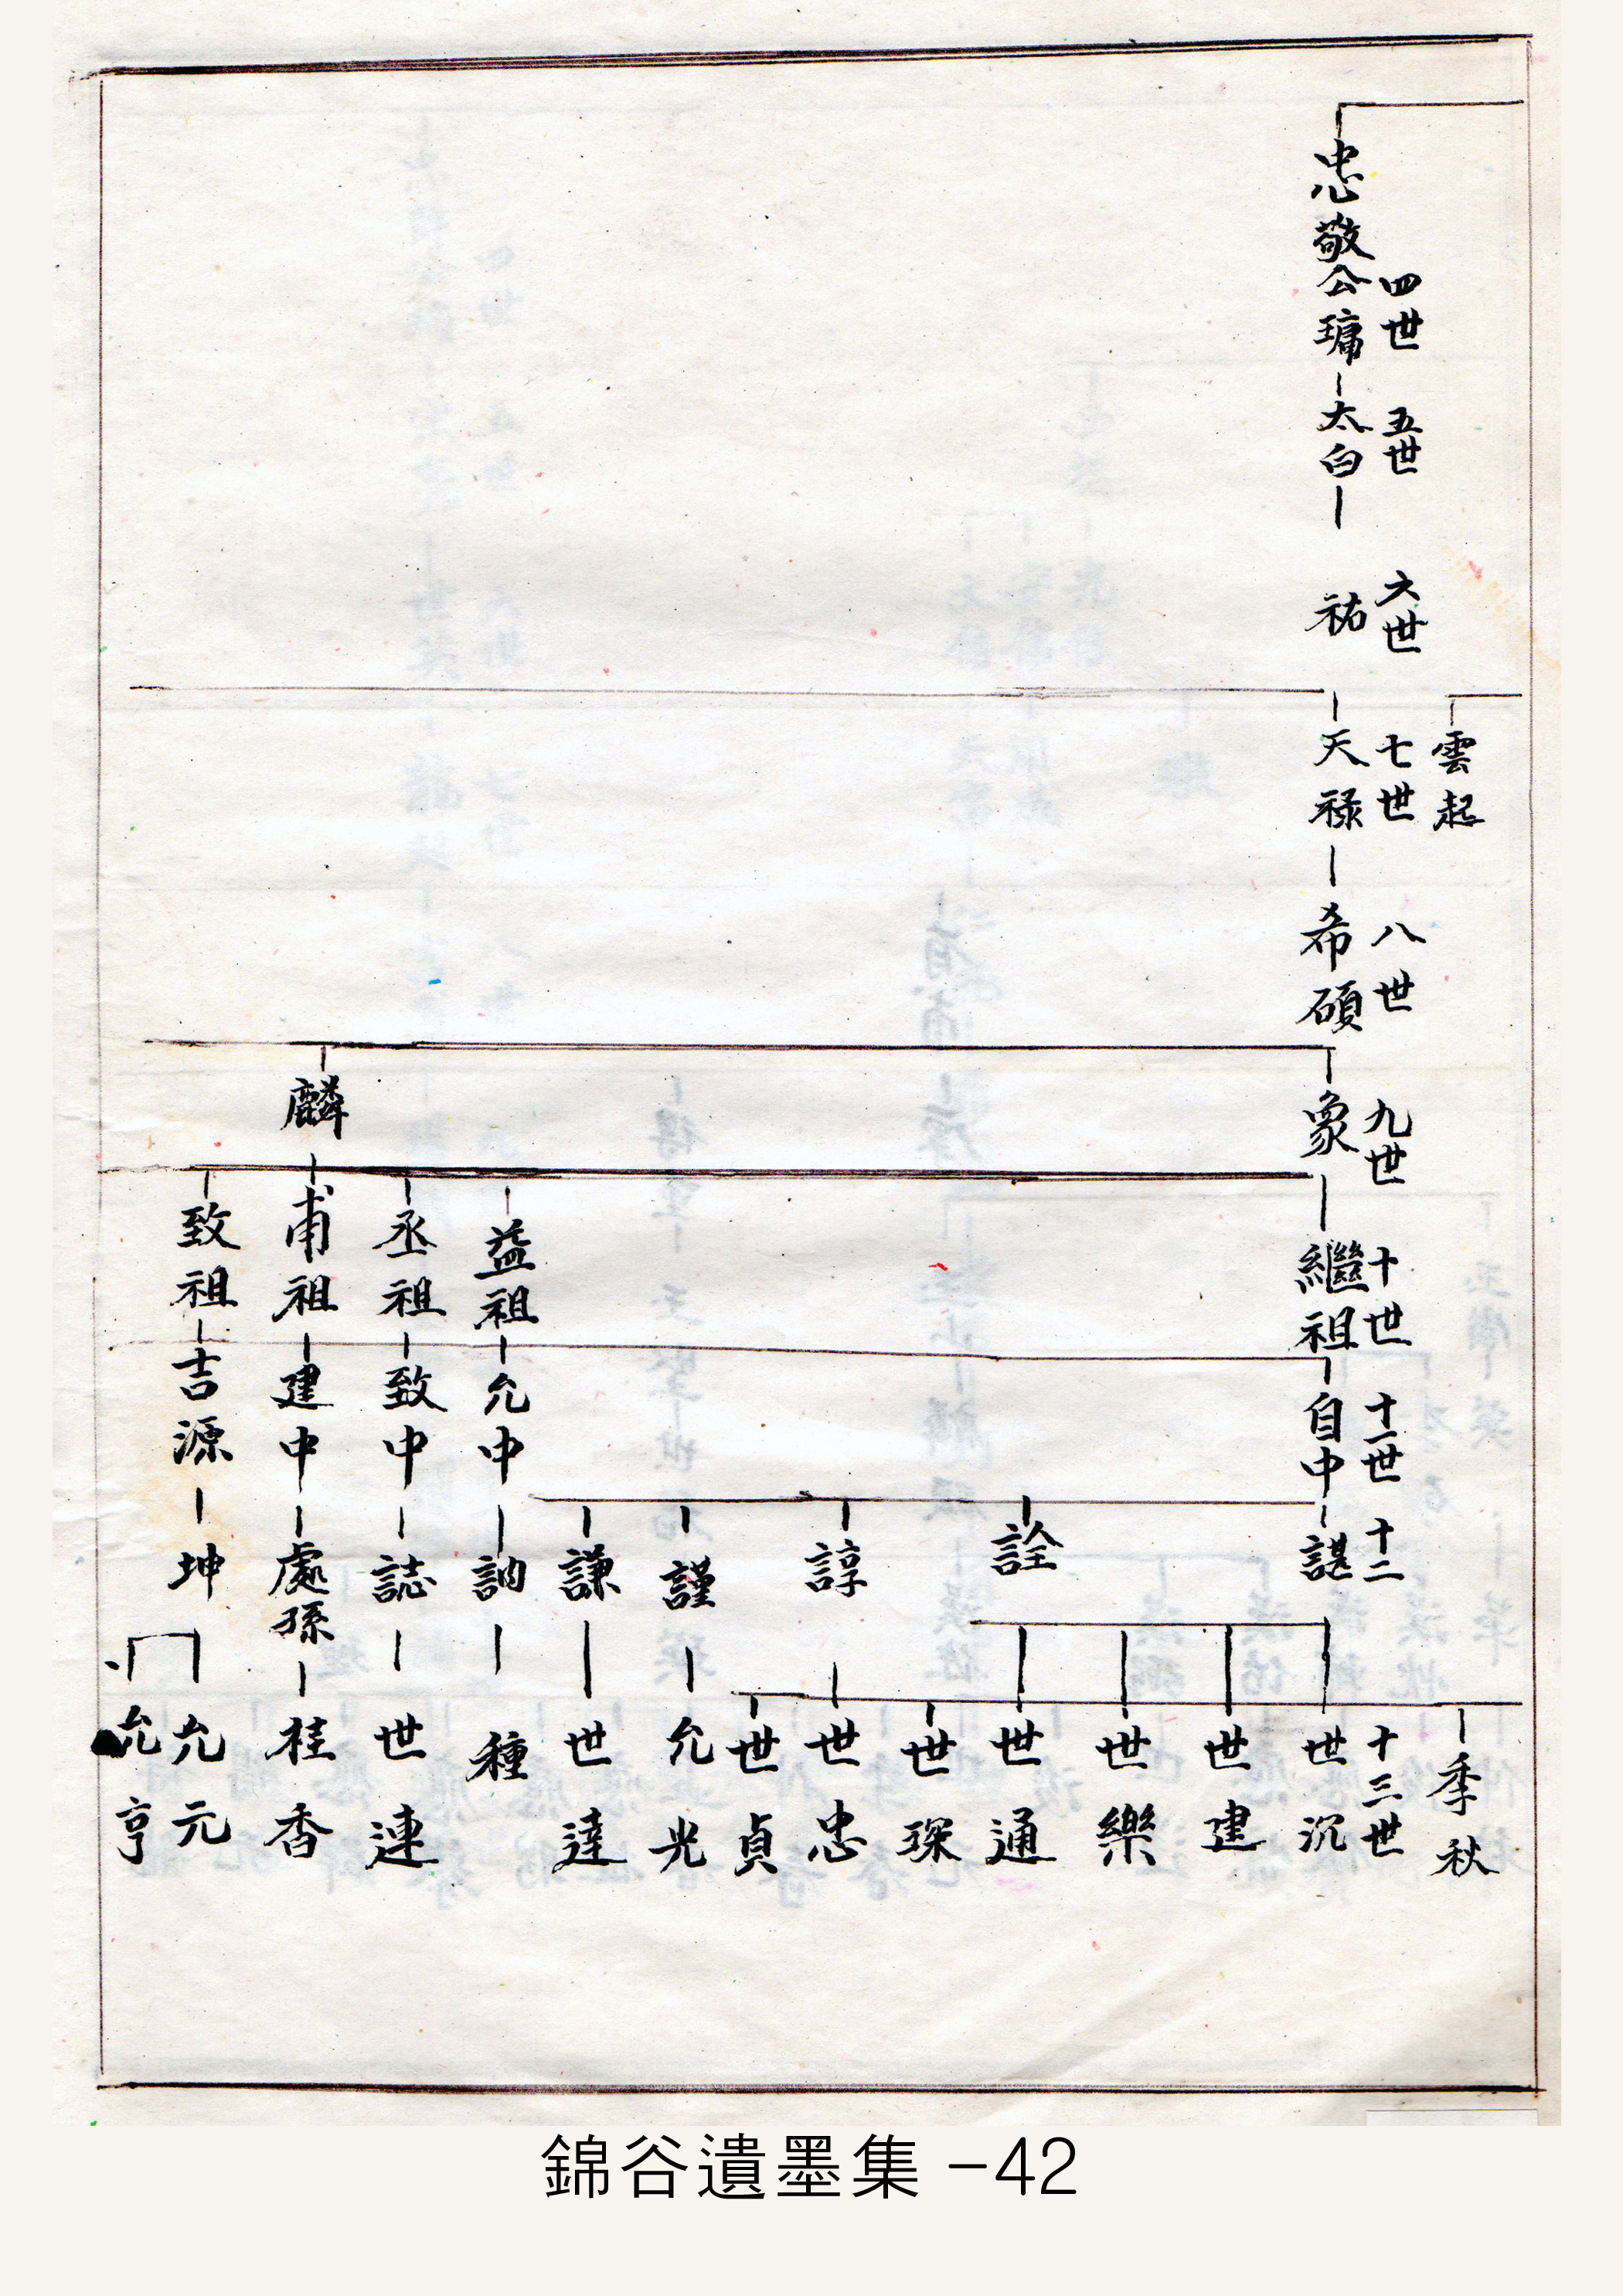 雲起
季秋
四世
五世
六世
七世
八世
九世
十世
十一世
十二
十三世
忠敬公璛
太白
祐
天祿
希碩
象
繼祖
自中
諶
世沉
世建
世樂
詮
世通
世琛
諄
世忠
世貞
謹
允光
謙
世達
益祖
允中
訥
種
丞祖
致中
誌
世連
麟
甫祖
建中
處孫
桂香
致祖
吉源
坤
允元
允亨
錦谷遺墨集 -42